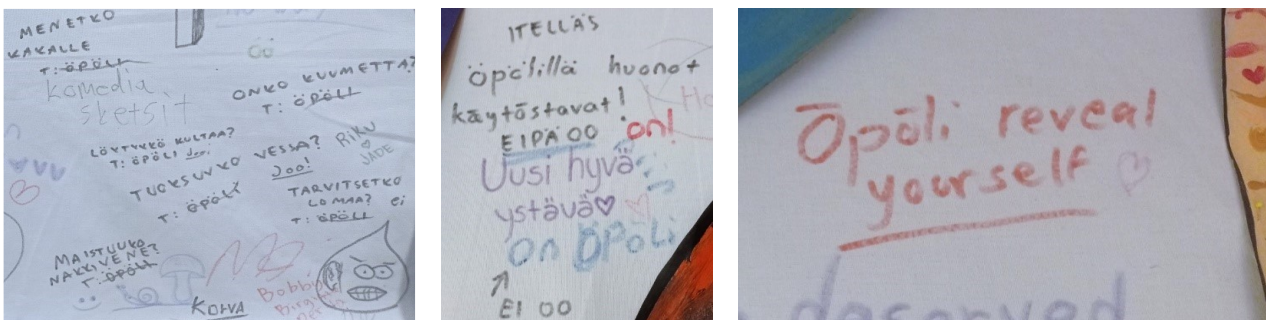 MENETKÖ
KAKALLE
T: ÖPÖLI
komedia
sketsit
ÖÖ
ONKO KUUMETTA?
T: ÖPÖLI
LÖYTYYKÖ KULTAA?
T: ÖPÖLI Joo!
TUOKSUUKO VESSA?
T: ÖPÖLI
Joo!
RIKU
♡
JADE
TARVITSETKO
LOMAA? ei
T: ÖPÖLI
MAISTUUKO
NAKKIVENE?
T: ÖPÖLI
KORVA
Bobby
ITELLÄS
Öpölillä huonot
käytöstavat!
EIPÄ OO on!
Uusi hyvä
ystävä♥
on ÖPÖLI
↑
EI OO
Öpöli reveal
yourself ♡
deserved